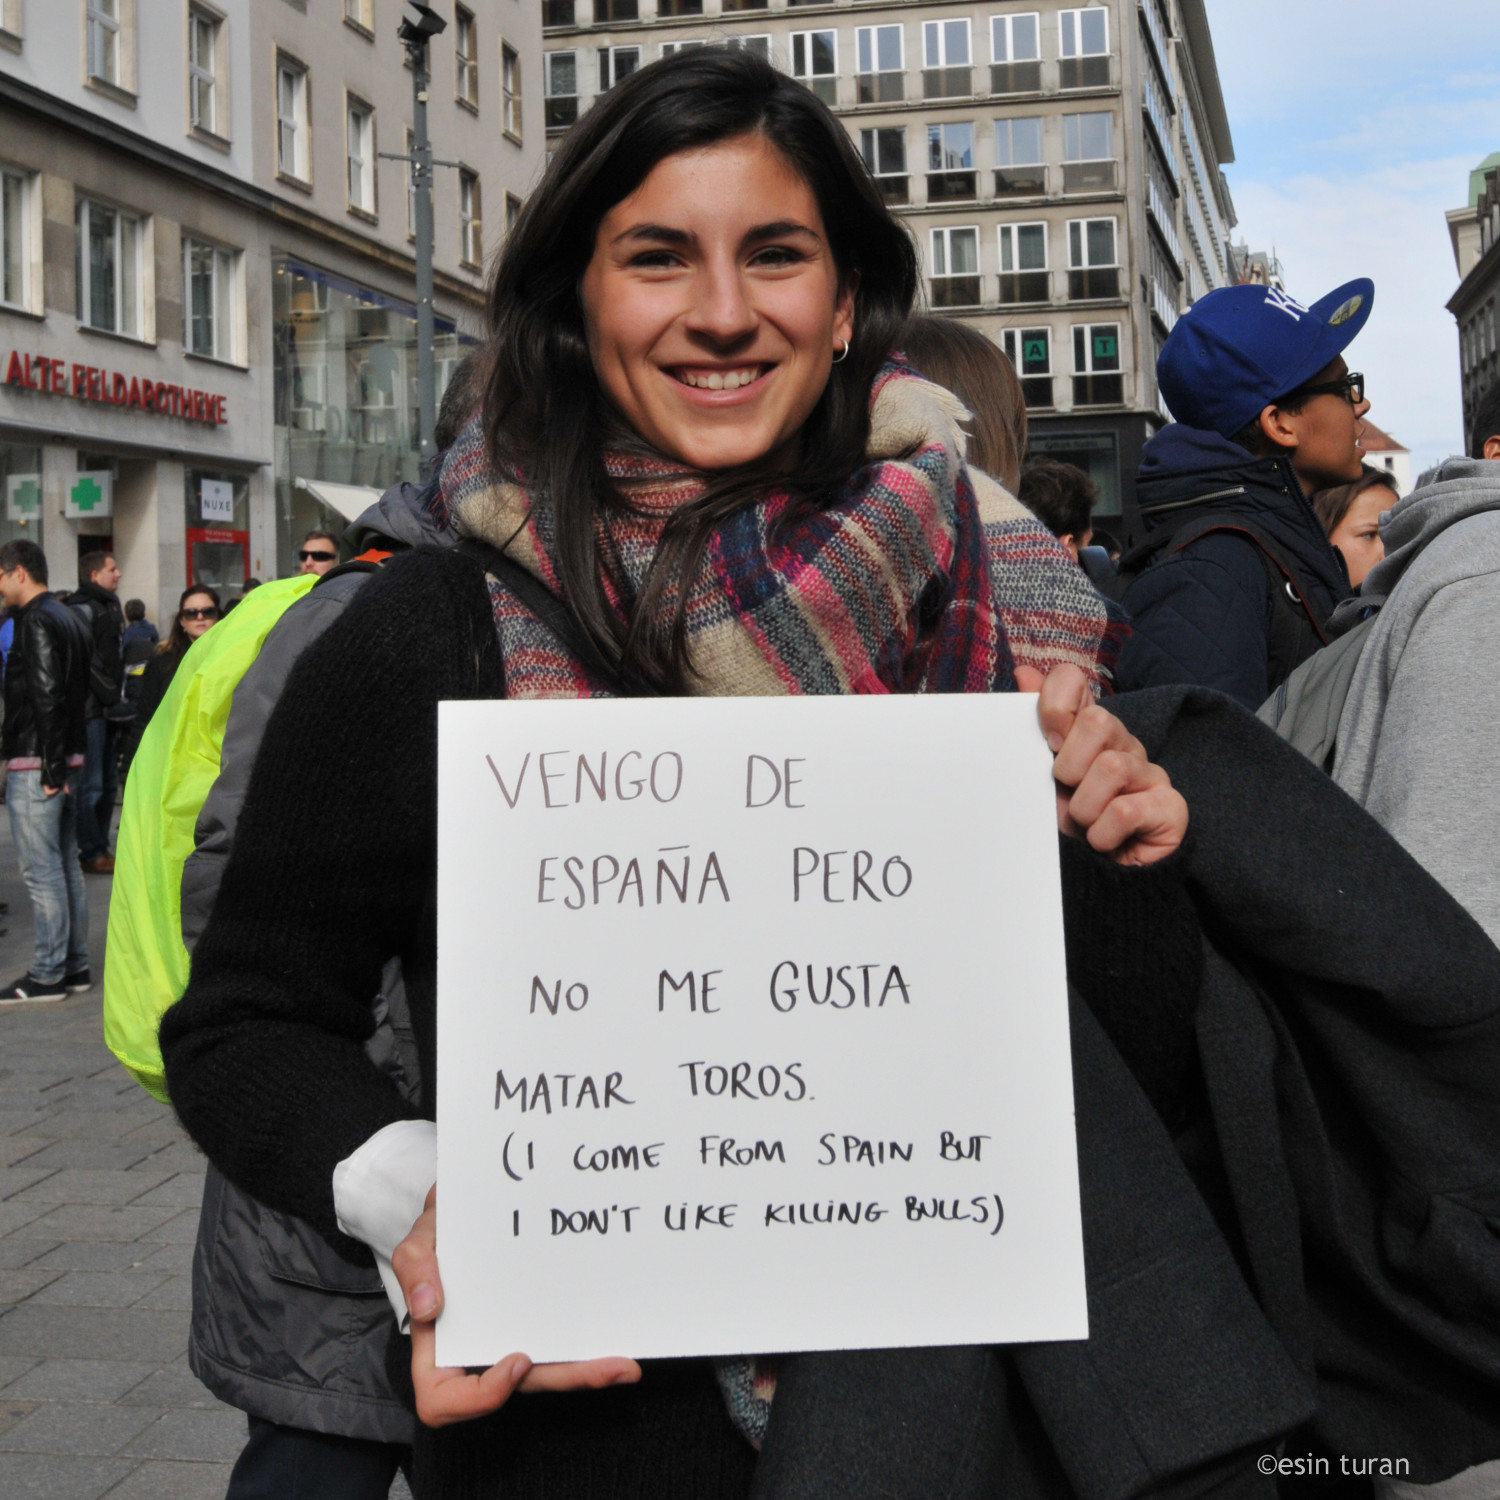 ALTE FELDAPOTHEKE
NUXE
A T
KC
VENGO DE
ESPAÑA PERO
NO ME GUSTA
MATAR TOROS.
(I COME FROM SPAIN BUT
I DON'T LIKE KILLING BULLS)
©esin turan